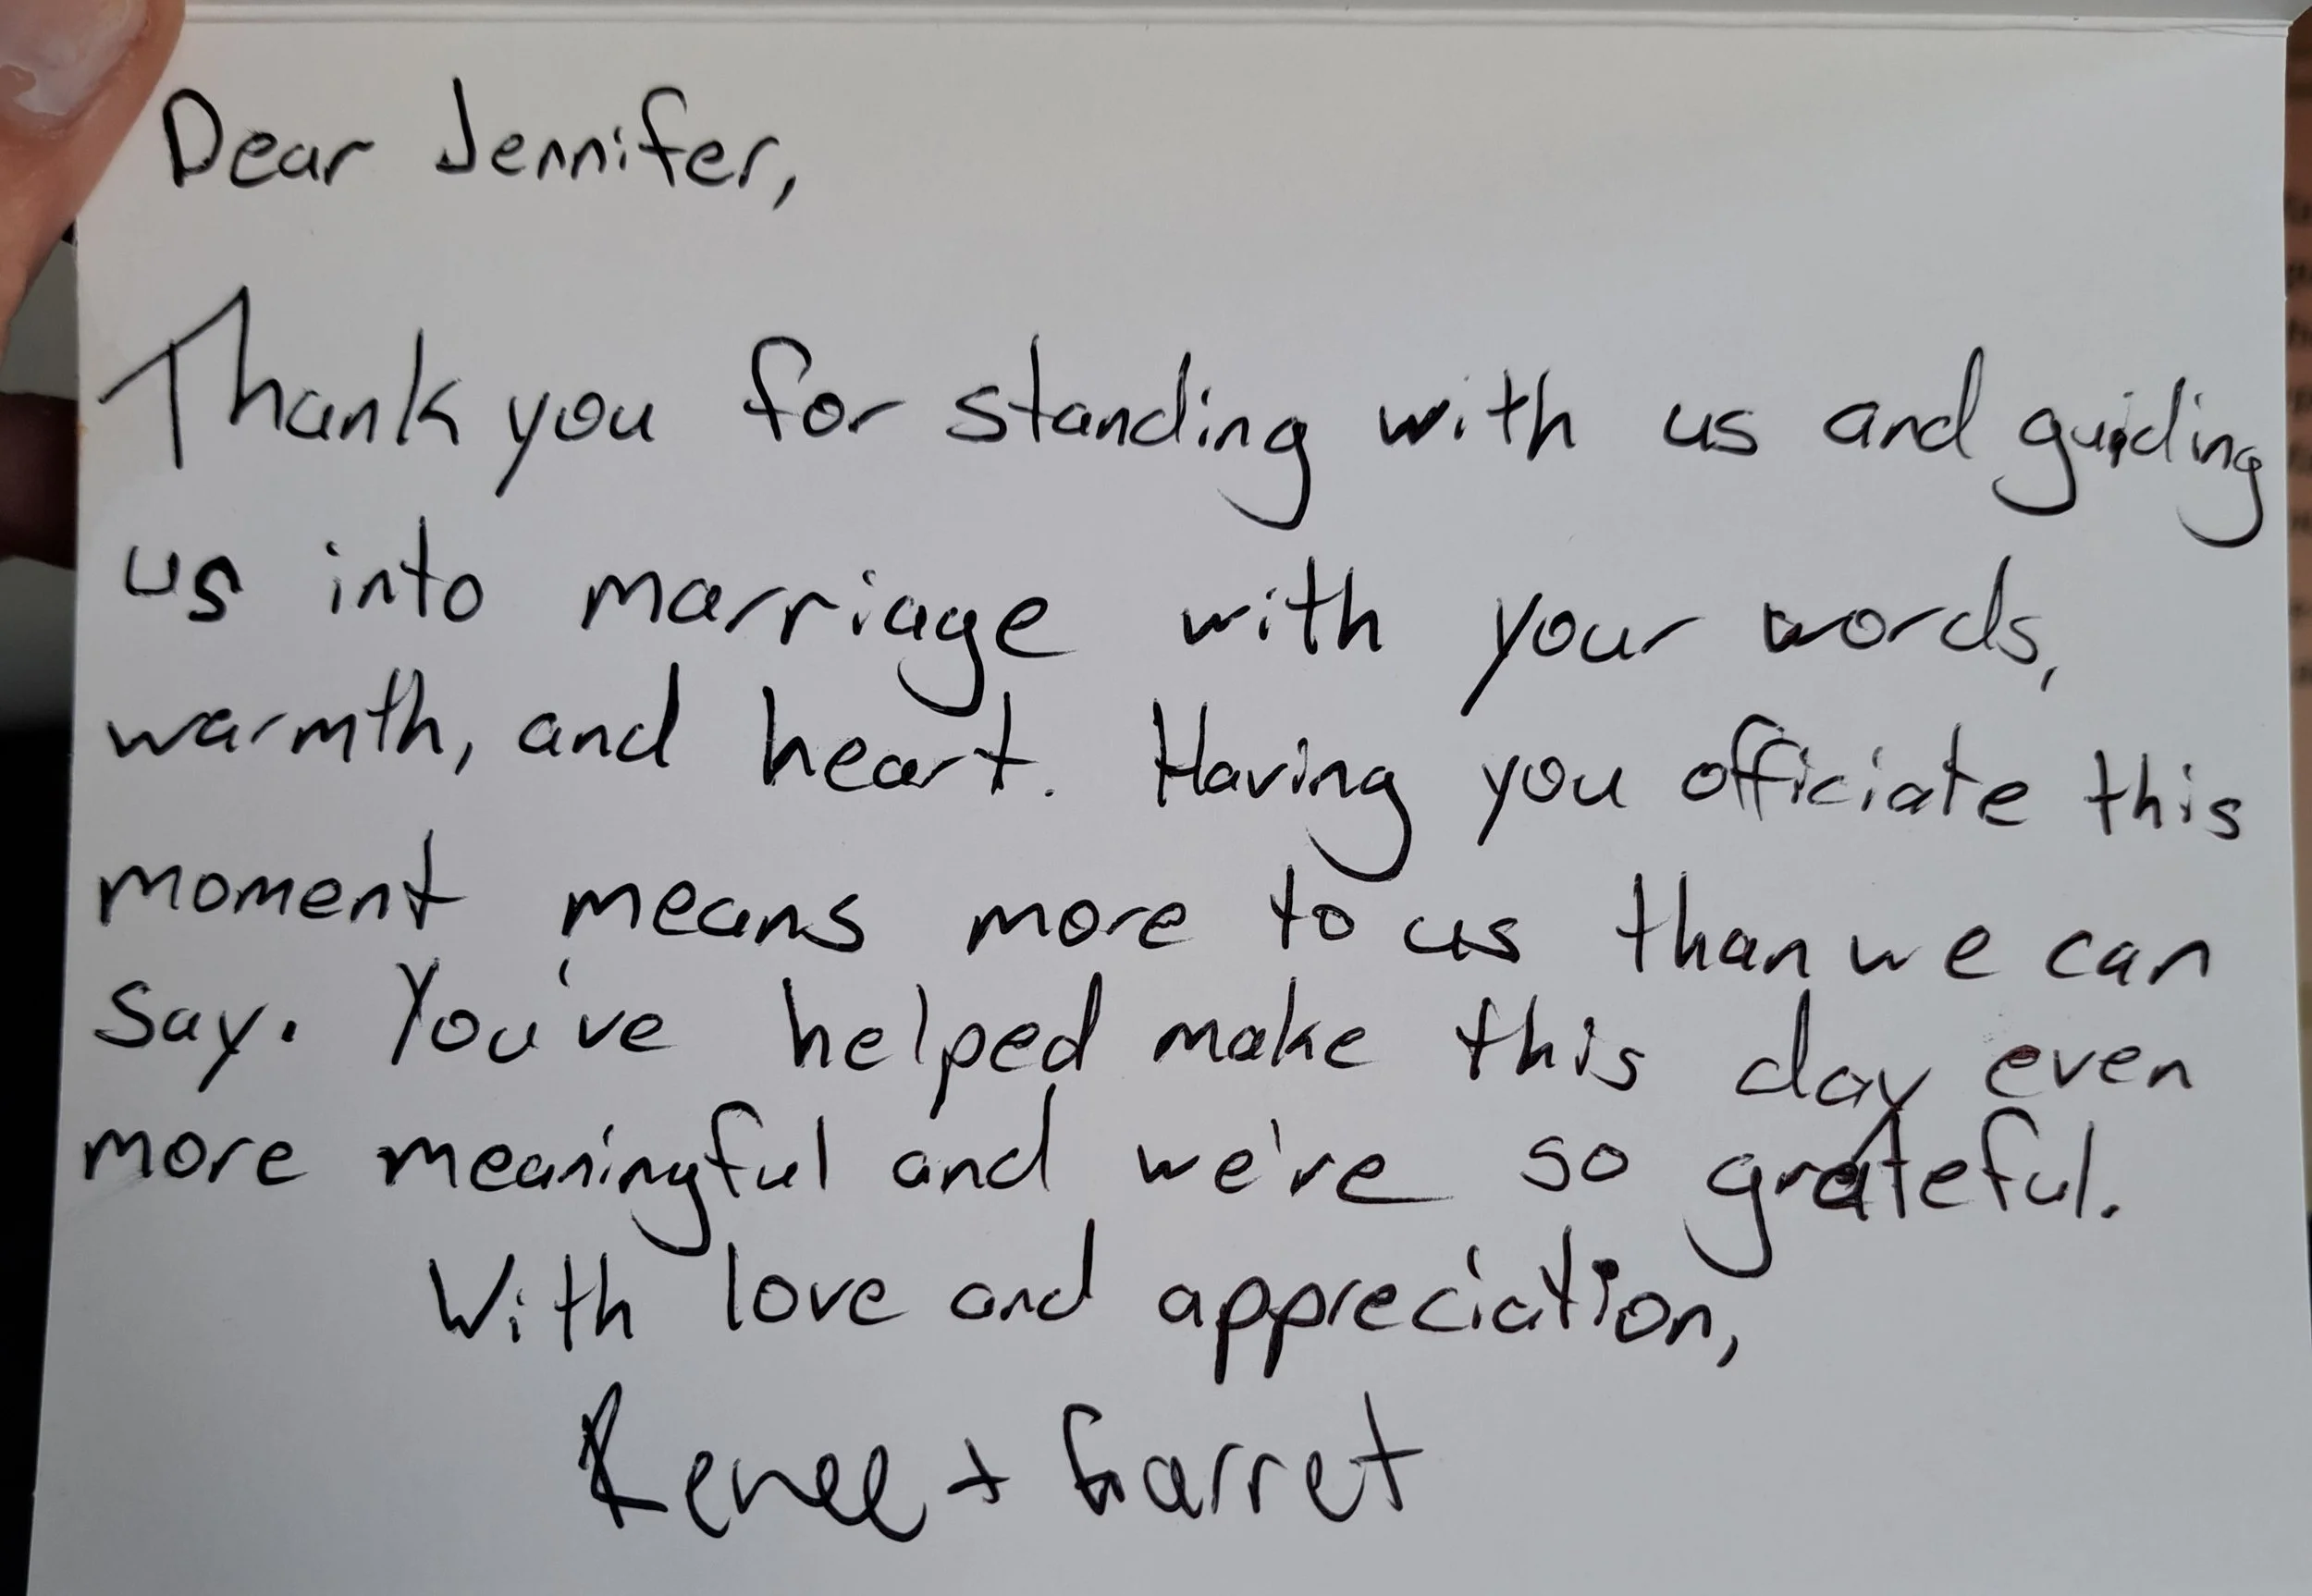 Dear Jennifer,
Thank you for standing with us and guiding
us into marriage with your words,
warmth, and heart. Having you officiate this
moment means more to us than we can
say. You've helped make this day even
more meaningful and we're so grateful.
With love and appreciation,
Renee + Garret